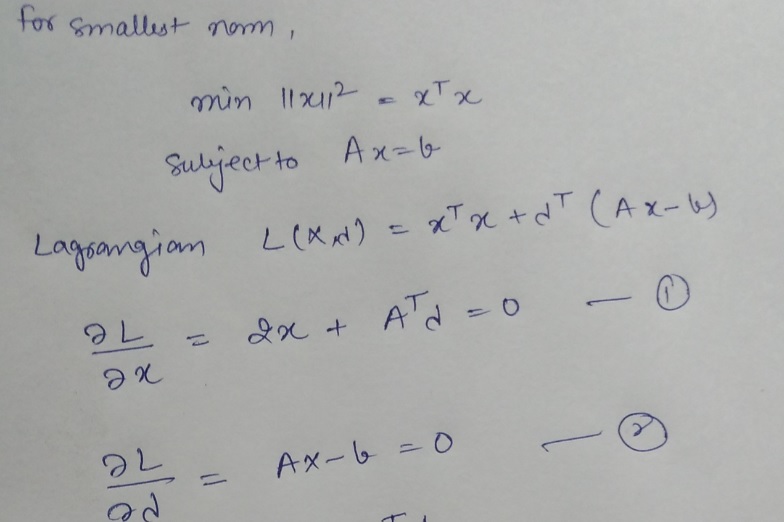 for smallest norm,
min ||x||² = xᵀx
subject to Ax=b
Lagrangian L(x,d) = xᵀx + dᵀ(Ax-b)
∂L/∂x = 2x + Aᵀd = 0 — ①
∂L/∂d = Ax-b = 0 — ②